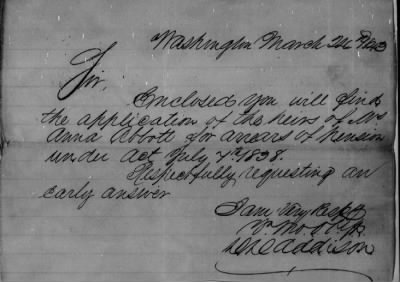 Washington March 24
Sir,
Enclosed you will find
the application of the heirs of Mrs
Anna Abbott for arears of Pension
under act July 7th 1838.
Respectfully requesting an
early answer
I am Very Resply
Addison